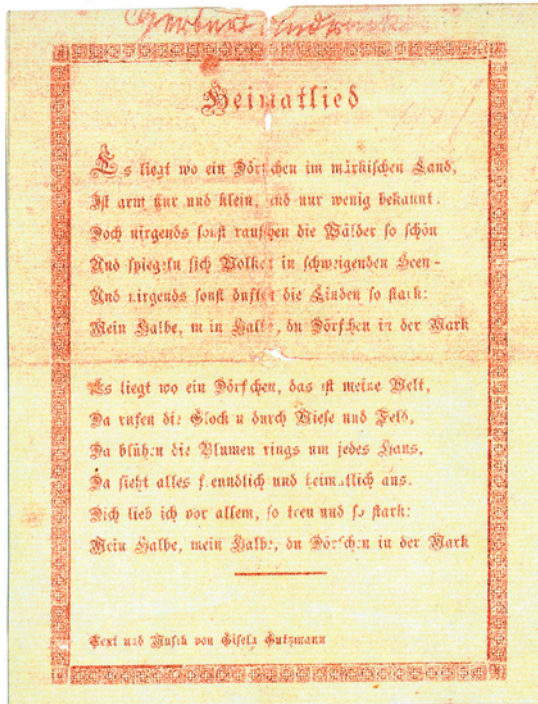 Heimatlied
Es liegt wo ein Dörfchen im märkischen Land,
Ist arm nur und klein, und nur wenig bekannt.
Doch nirgends sonst rauschen die Wälder so schön
Und spiegeln sich Wolken in schweigenden Seen-
Und nirgends sonst duften die Linden so stark:
Mein Halbe, mein Halbe, du Dörfchen in der Mark
Es liegt wo ein Dörfchen, das ist meine Welt,
Da rufen die Glocken durch Wiese und Feld,
Da blühen die Blumen rings um jedes Haus,
Da sieht alles freundlich und heimatlich aus.
Dich lieb ich vor allem, so treu und so stark:
Mein Halbe, mein Halbe, du Dörfchen in der Mark
Text und Musik von Gisela Gutzmann